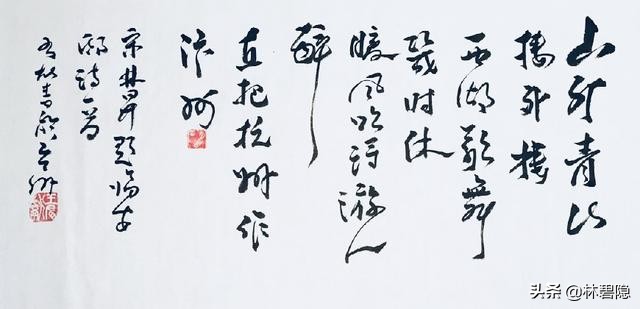 山外青山
楼外楼
西湖歌舞
幾时休
暖风吹得游人
醉
直把杭州作
汴州
宋林昇题临安
邸诗一首
头条 @林碧隐